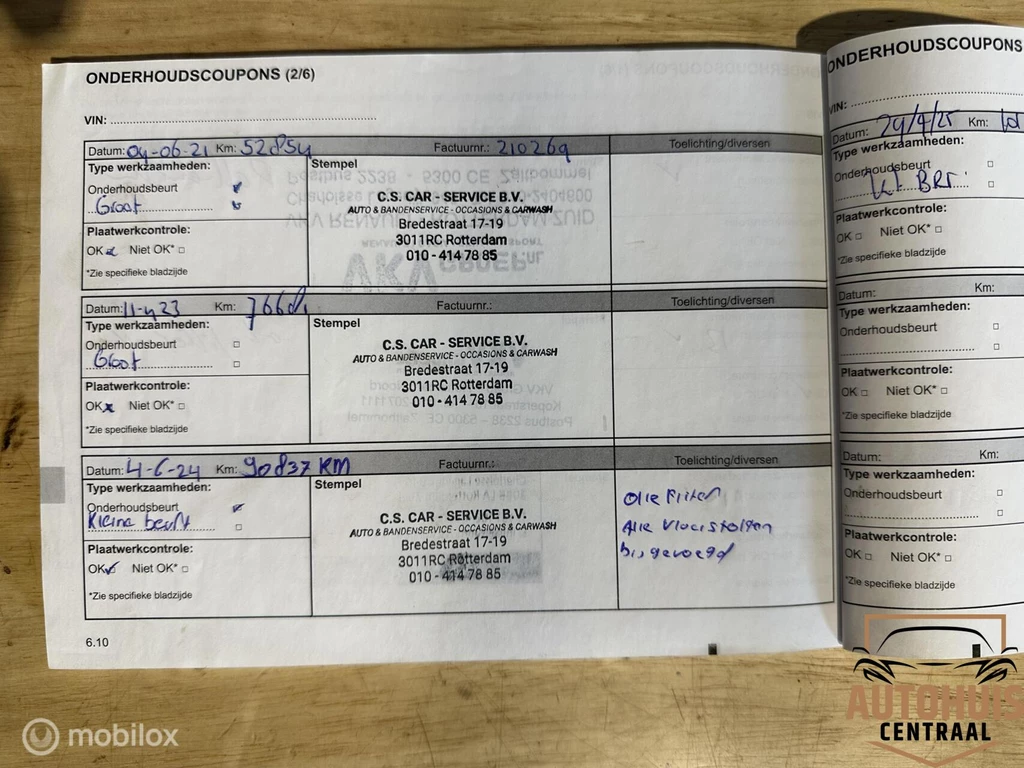 ONDERHOUDSCOUPONS (2/6)
VIN:
Datum: 04-06-21 Km: 52854 Factuurnr.: 210269 Toelichting/diversen
Type werkzaamheden: Stempel
Onderhoudsbeurt
Groot
Plaatwerkcontrole:
OK Niet OK*
*Zie specifieke bladzijde
C.S. CAR - SERVICE B.V.
AUTO & BANDENSERVICE - OCCASIONS & CARWASH
Bredestraat 17-19
3011RC Rotterdam
010 - 414 78 85
Datum: 11-4 23 Km: Factuurnr.: Toelichting/diversen
Type werkzaamheden: Stempel
Onderhoudsbeurt
Groot
Plaatwerkcontrole:
OK Niet OK*
*Zie specifieke bladzijde
C.S. CAR - SERVICE B.V.
AUTO & BANDENSERVICE - OCCASIONS & CARWASH
Bredestraat 17-19
3011RC Rotterdam
010 - 414 78 85
Datum: 4-6-24 Km: 90837 KM Factuurnr.: Toelichting/diversen
Type werkzaamheden: Stempel
Onderhoudsbeurt
Kleine beurt
Plaatwerkcontrole:
OK Niet OK*
*Zie specifieke bladzijde
C.S. CAR - SERVICE B.V.
AUTO & BANDENSERVICE - OCCASIONS & CARWASH
Bredestraat 17-19
3011RC Rotterdam
010 - 414 78 85
Olie Filter
Alle vloeistoffen
bijgevoegd
6.10
ONDERHOUDSCOUPONS
VIN:
Datum: 29/4/25 Km:
Type werkzaamheden:
Onderhoudsbeurt
Plaatwerkcontrole:
OK Niet OK*
*Zie specifieke bladzijde
Datum: Km:
Type werkzaamheden:
Onderhoudsbeurt
Plaatwerkcontrole:
OK Niet OK*
*Zie specifieke bladzijde
Datum: Km:
Type werkzaamheden:
Onderhoudsbeurt
Plaatwerkcontrole:
OK Niet OK*
*Zie specifieke bladzijde
AUTOHUIS
CENTRAAL
mobilox